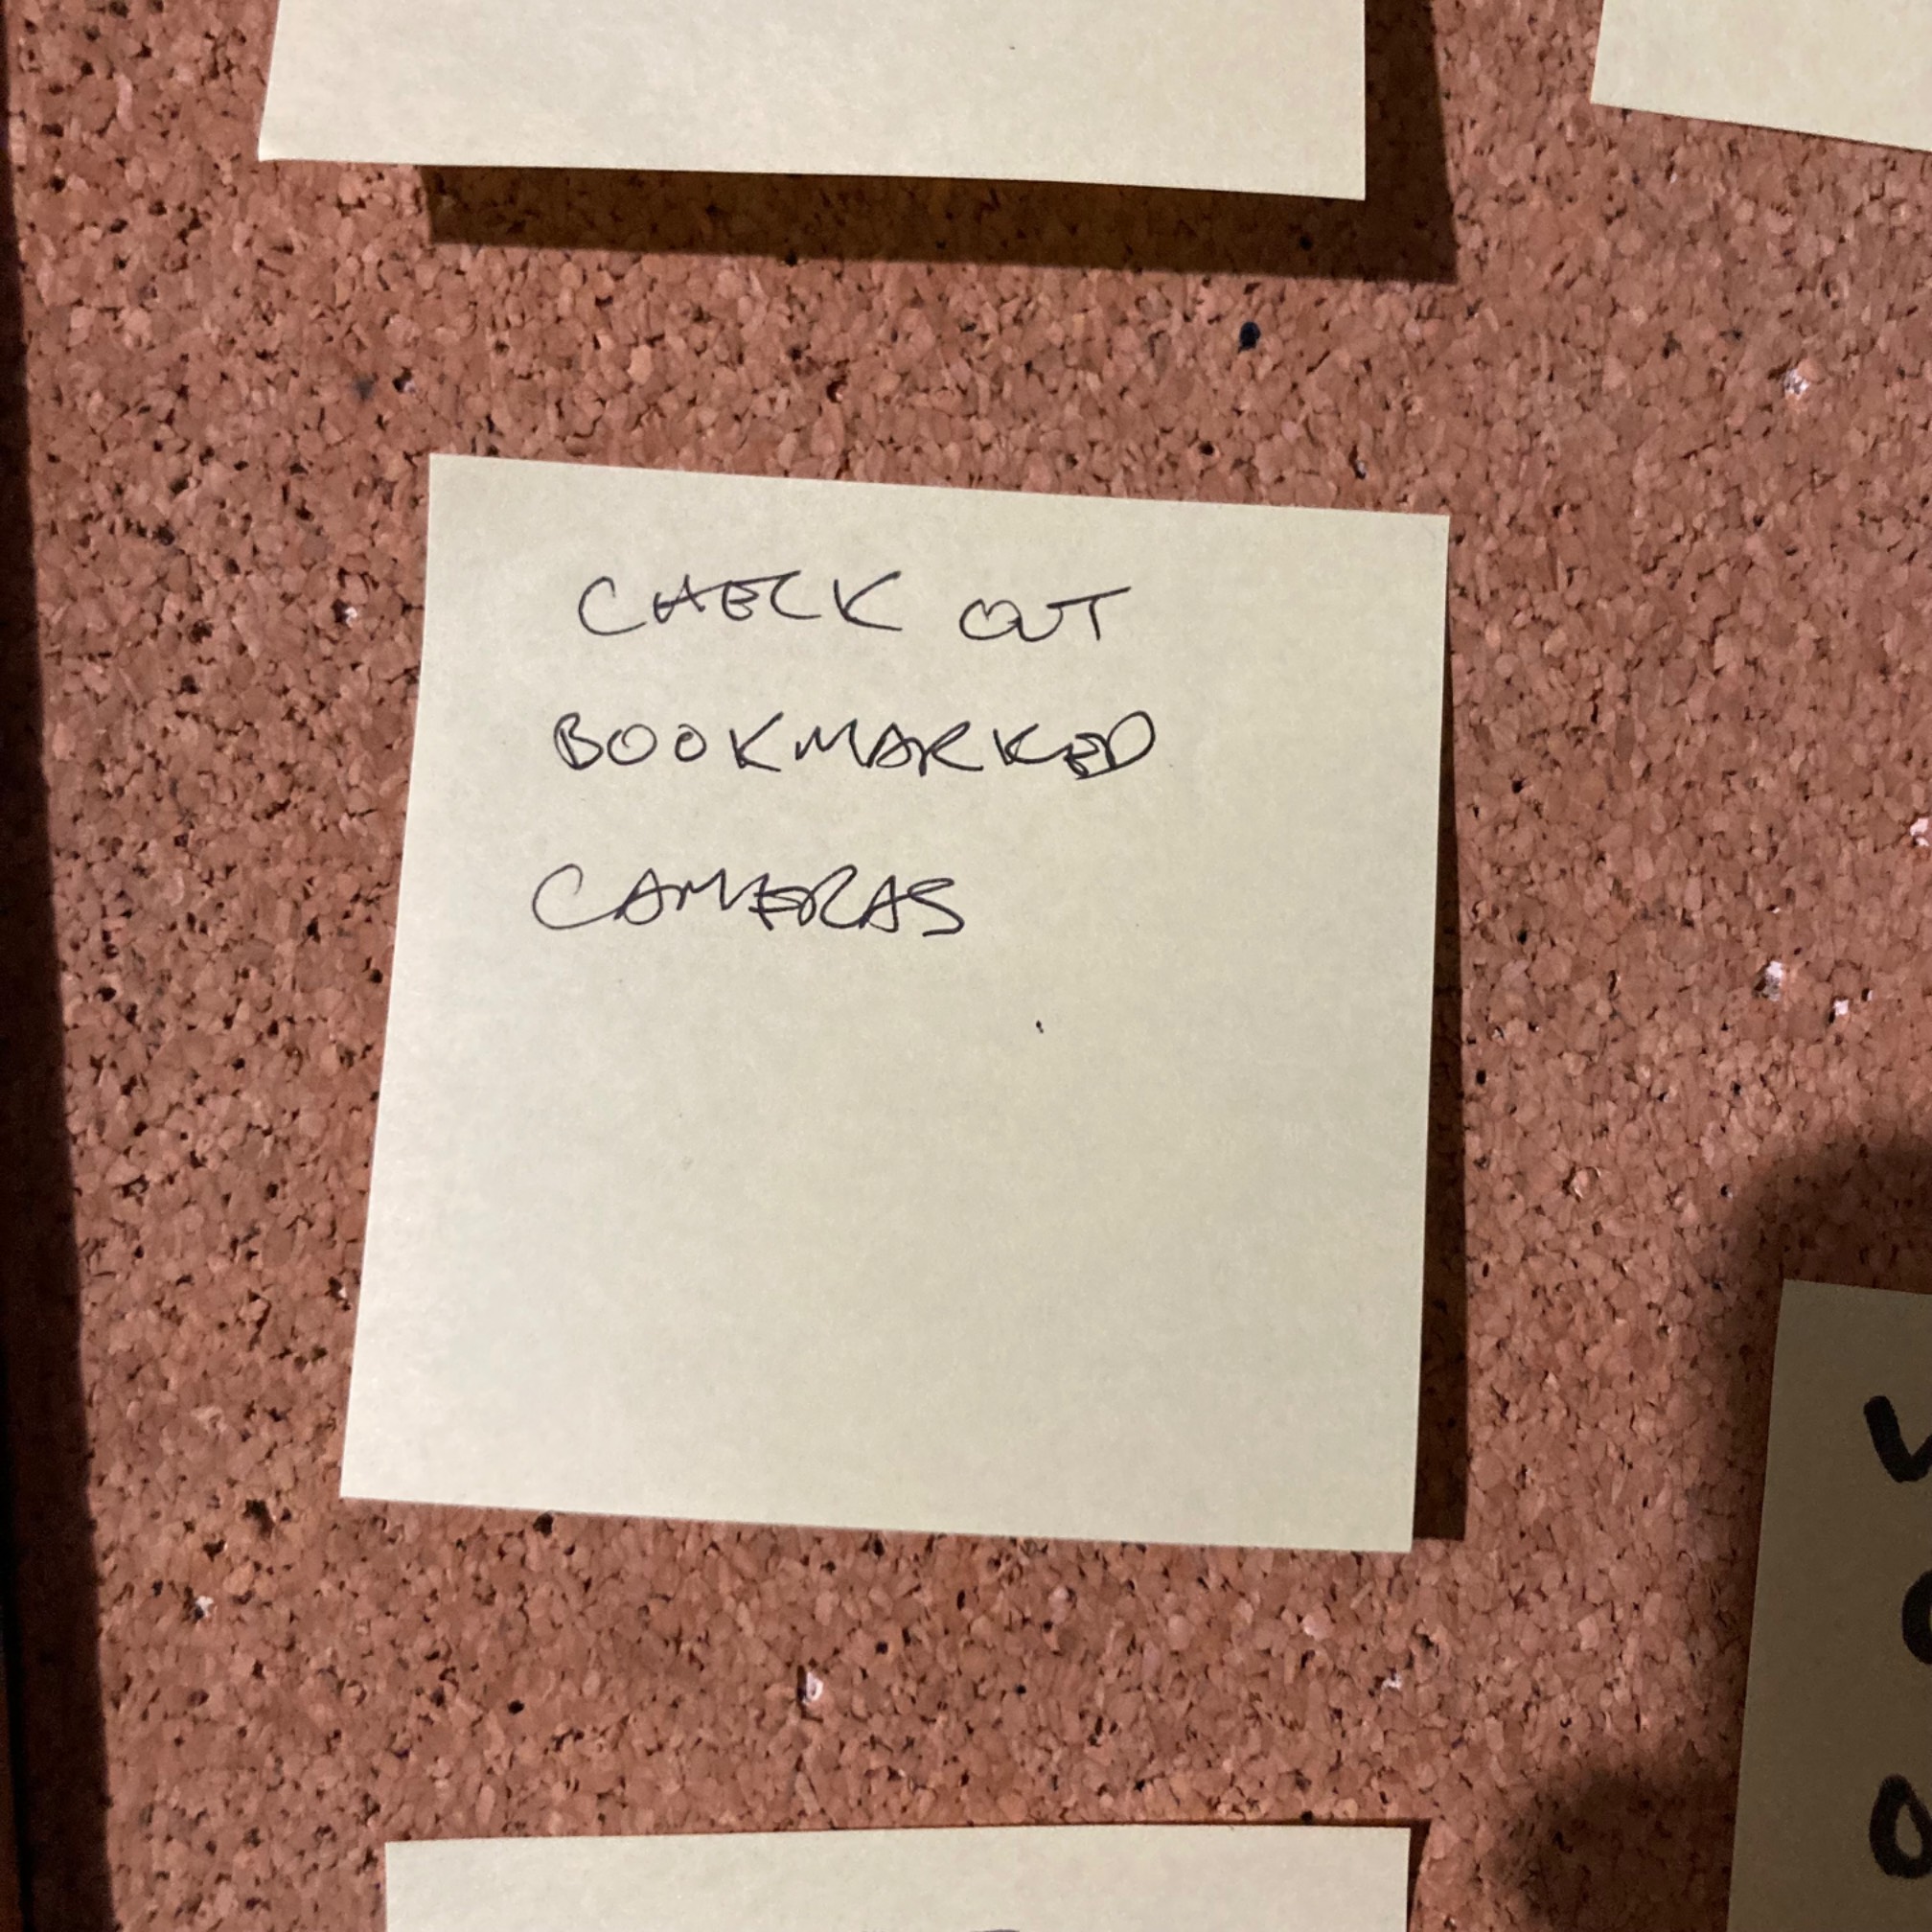 CHECK OUT
BOOKMARKED
CAMERAS